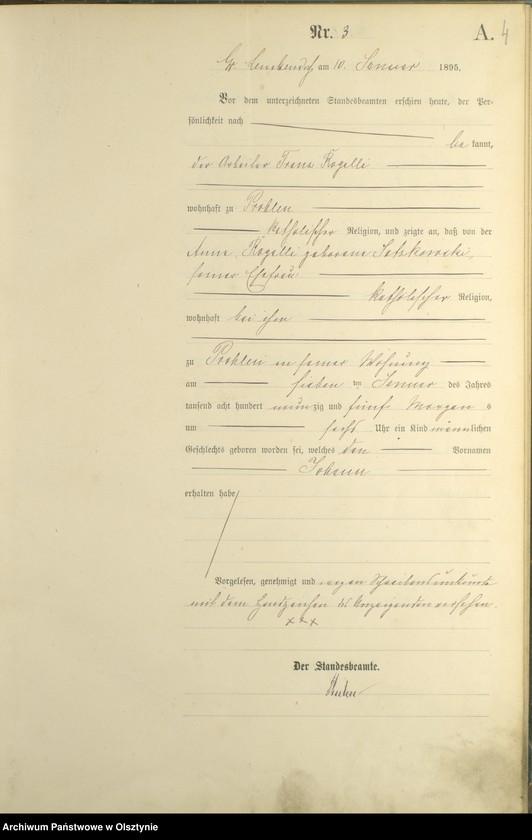 Nr. 3
A. 4
Gr. am 10. Januar 1895.
Vor dem unterzeichneten Standesbeamten erschien heute, der Per-
sönlichkeit nach
be kannt,
der Arbeiter Franz Rogalli
wohnhaft zu
katholischer Religion, und zeigte an, daß von der
Anna Rogalli geborene
seiner Ehefrau
katholischer Religion,
wohnhaft bei ihm
zu in seiner Wohnung
am sieben ten Januar des Jahres
tausend acht hundert neun zig und fünf Morgen s
um sechs Uhr ein Kind männlichen
Geschlechts geboren worden sei, welches den Vornamen
Johann
erhalten habe
Vorgelesen, genehmigt und wegen Schreibensunkunde
mit dem Handzeichen des Anzeigenden versehen.
xxx
Der Standesbeamte.
Archiwum Państwowe w Olsztynie